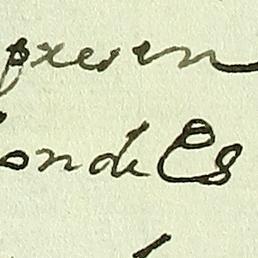 presen
onde Es